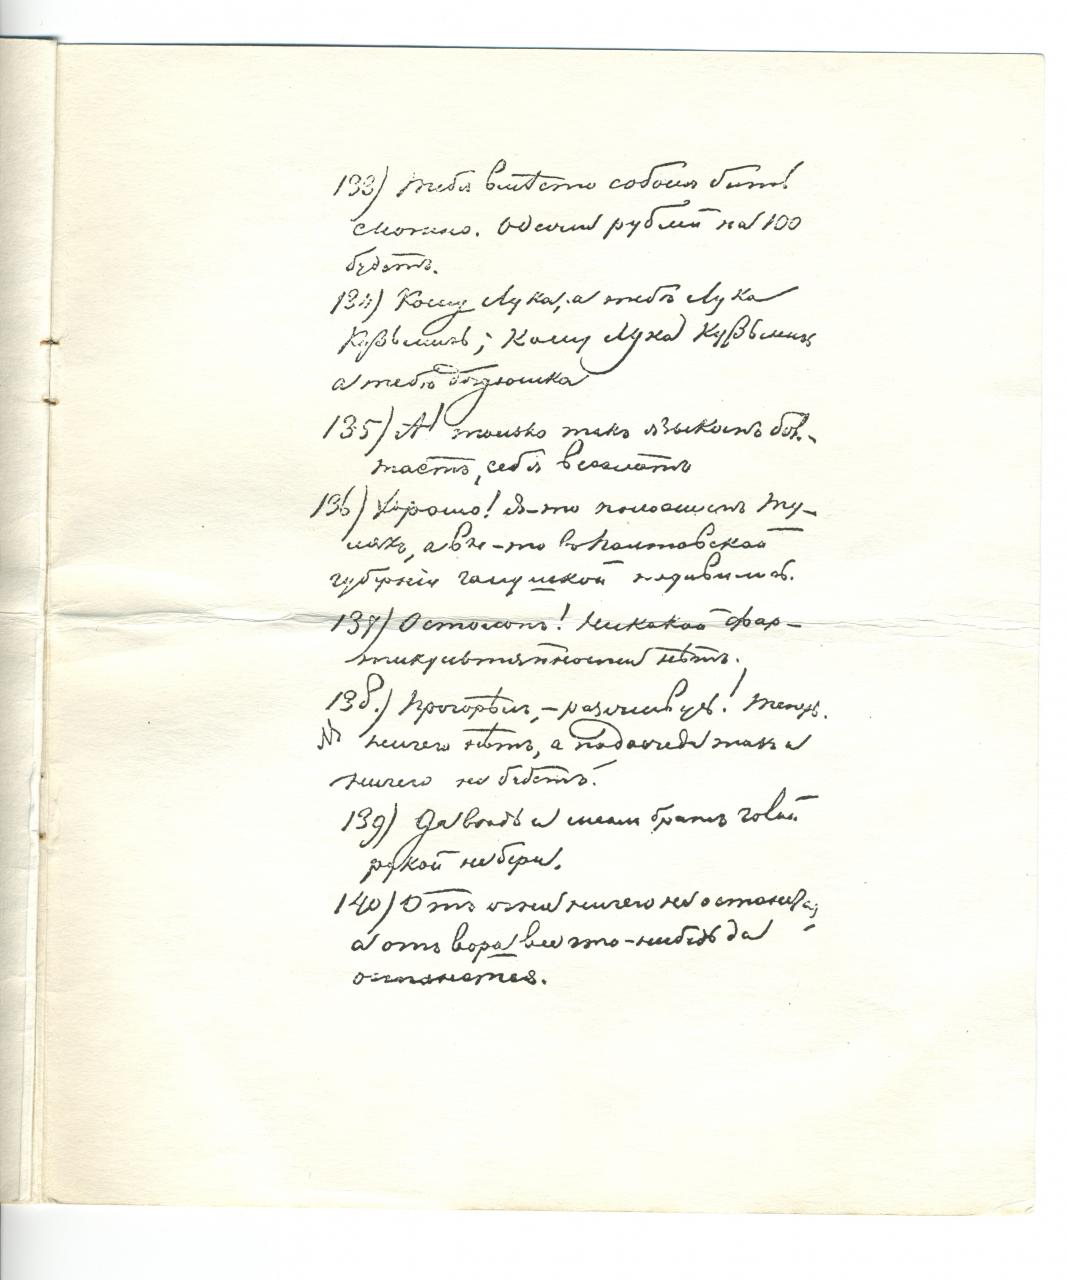 133) Тебя вмѣсто бить
можно. Одежи рублей на 100
будетъ.
134) Кому Лука, а тебѣ Лука
Кузьмичъ; Кому Лука Кузьмичъ
а тебѣ дядюшка
135) А! только такъ языкомъ бол-
таетъ, себя веселитъ
136) Хорошо! Я-то положимъ Ту-
лякъ, а вы-то въ Полтавской
губерніи галушкой подавились.
137) Остолопъ! Никакой фар-
тикультяпности нѣтъ.
138.) Прогорѣли, – разживусь!
ничего нѣтъ, а подожди такъ и
ничего не будетъ!
139) Да вѣдь и меня братъ голой
рукой не бери.
140) Отъ огня ничего не останется,
а отъ вора все что-нибудь да
останется.